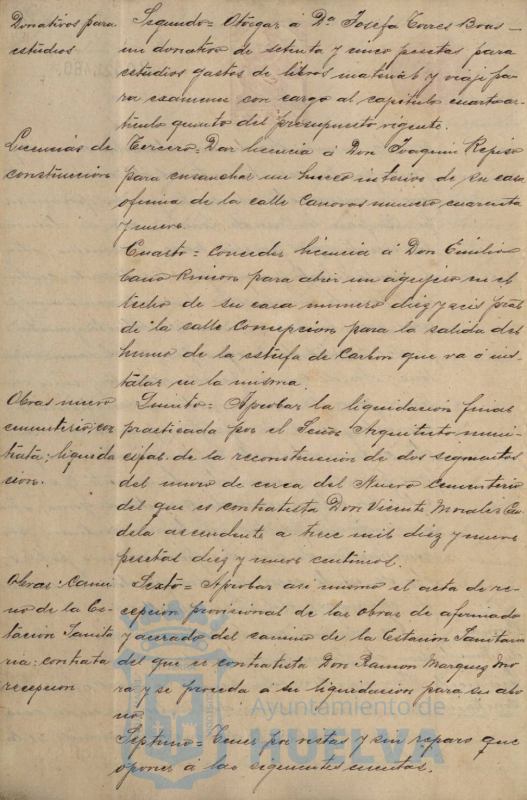 Donativos para
estudios
Segundo = Otorgar á Dª Josefa Torres Boas
un donativo de setenta y cinco pesetas para
estudios gastos de libros material y viaje pa-
ra examenes con cargo al capitulo cuarto ar-
tículo quinto del presupuesto vigente.
Licencias de
construcción
Tercero = Dar licencia á Don Joaquin Repiso
para ensanchar un hueco interior de su casa
oficina de la calle Canovas numero cuarenta
y nueve.
Cuarto = Conceder licencia á Don Emilio
Cano Rincon para abrir un agujero en el
techo de su casa numero diez y seis
de la calle Concepcion para la salida del
humo de la estufa de Carbon que va á ins-
talar en la misma.
Obras nuevo
cementerio; con
trata: liquida
cion.
Quinto = Aprobar la liquidacion final
practicada por el Señor Arquitecto muni-
cipal de la reconstruccion de dos segmentos
del muro de cerca del Nuevo Cementerio
del que es contratista Don Vicente Morales
ascendente a trece mil diez y nueve
pesetas diez y nueve centimos.
Obras: Cami
no de la Es-
tacion Sanita
ria: contrata
recepcion
Sexto = Aprobar asi mismo el acta de re-
cepcion provisional de las obras de afirmado
y acerado del camino de la Estacion Sanitaria
del que es contratista Don Ramon Marquez Mo
ra y se proceda á su liquidacion para su abo
no.
Septimo = Tener por vistas y sin reparo que
oponer á las siguientes cuentas.
Ayuntamiento de
HUELVA